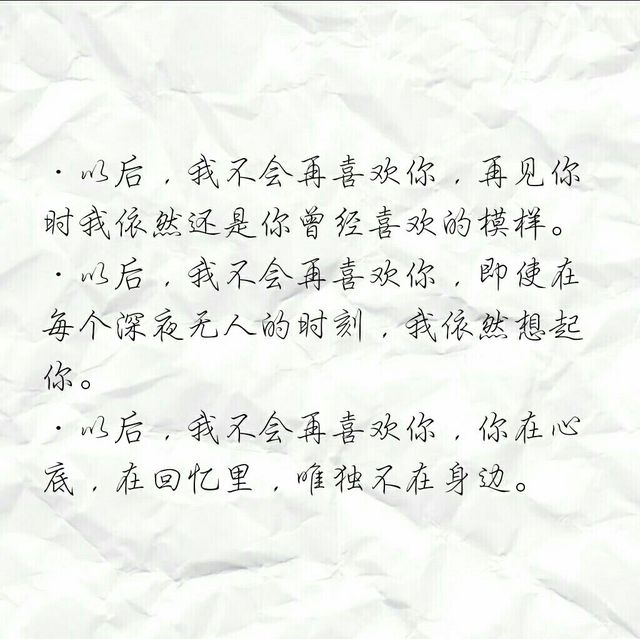 ·以后，我不会再喜欢你，再见你
时我依然还是你曾经喜欢的模样。
·以后，我不会再喜欢你，即使在
每个深夜无人的时刻，我依然想起
你。
·以后，我不会再喜欢你，你在心
底，在回忆里，唯独不在身边。